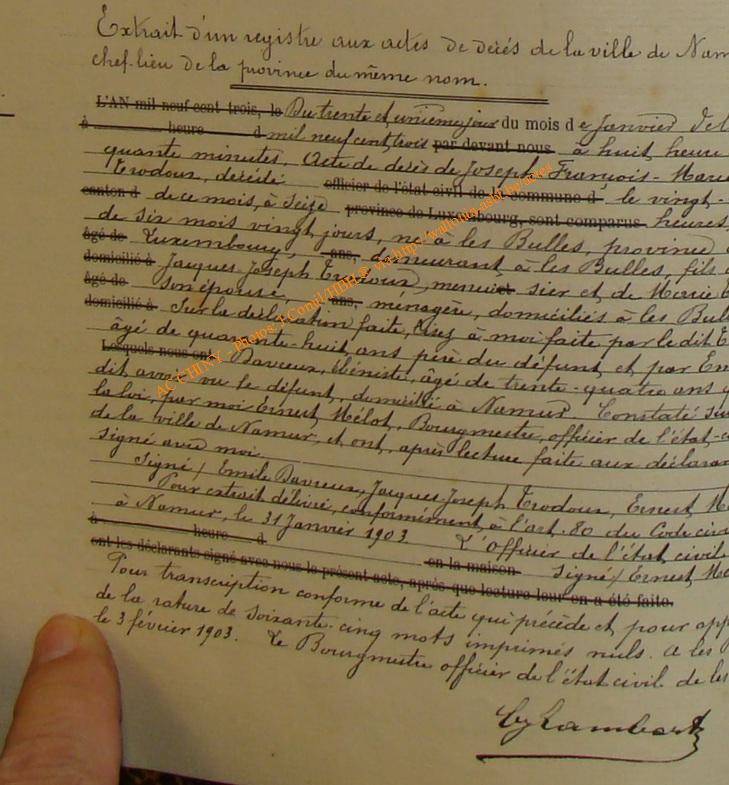 Extrait d'un registre aux actes de décés de la ville de Nam
chef-lieu de la province du même nom.
L'AN mil neuf cent trois, le Du trente et unieme jour du mois de Janvier del
à heure d mil neuf cent trois par devant nous à huit heure
quante minutes. Acte de décès de Joseph François-Marie
Erodoux, décédé officier de l'état civil de la commune d le vingt-
canton d de ce mois, à seize province de Luxembourg, sont comparus heures,
de six mois vingt jours, né à les Bulles, province
âgé de Luxembourg, ans, demeurant à les Bulles, fils
domicilié à Jacques Joseph Erodoux, menui sier et de Marie
âgé de son épouse, ans, ménagère, domiciliés à les Bull
domicilié à Sur la déclaration faite, à moi faite par le dit E
âgé de quarante-huit ans père du défunt, et par Em
Lesquels nous ont Davreux, ébéniste, âgé de trente-quatre ans
dit avoir vu le défunt, domicilié à Namur. Constaté
la loi, par moi Ernest Mélot, Bourgmestre, officier de l'état-c
de la ville de Namur, et ont, après lecture faite aux déclaran
signé avec moi.
Signé / Emile Davreux, Jacques-Joseph Erodoux, Ernest M
Pour extrait délivré, conformément à l'art. 80 du Code civi
à Namur, le 31 Janvier 1903. L'Officier de l'état civil
à heure d en la maison Signé / Ernest Mé
ont les déclarants signé avec nous le présent acte, après que lecture leur en a été faite.
Pour transcription conforme de l'acte qui précède et pour app
de la rature de soixante-cinq mots imprimés nuls. A les
le 3 février 1903. Le Bourgmestre officier de l'état civil de les
Lambert